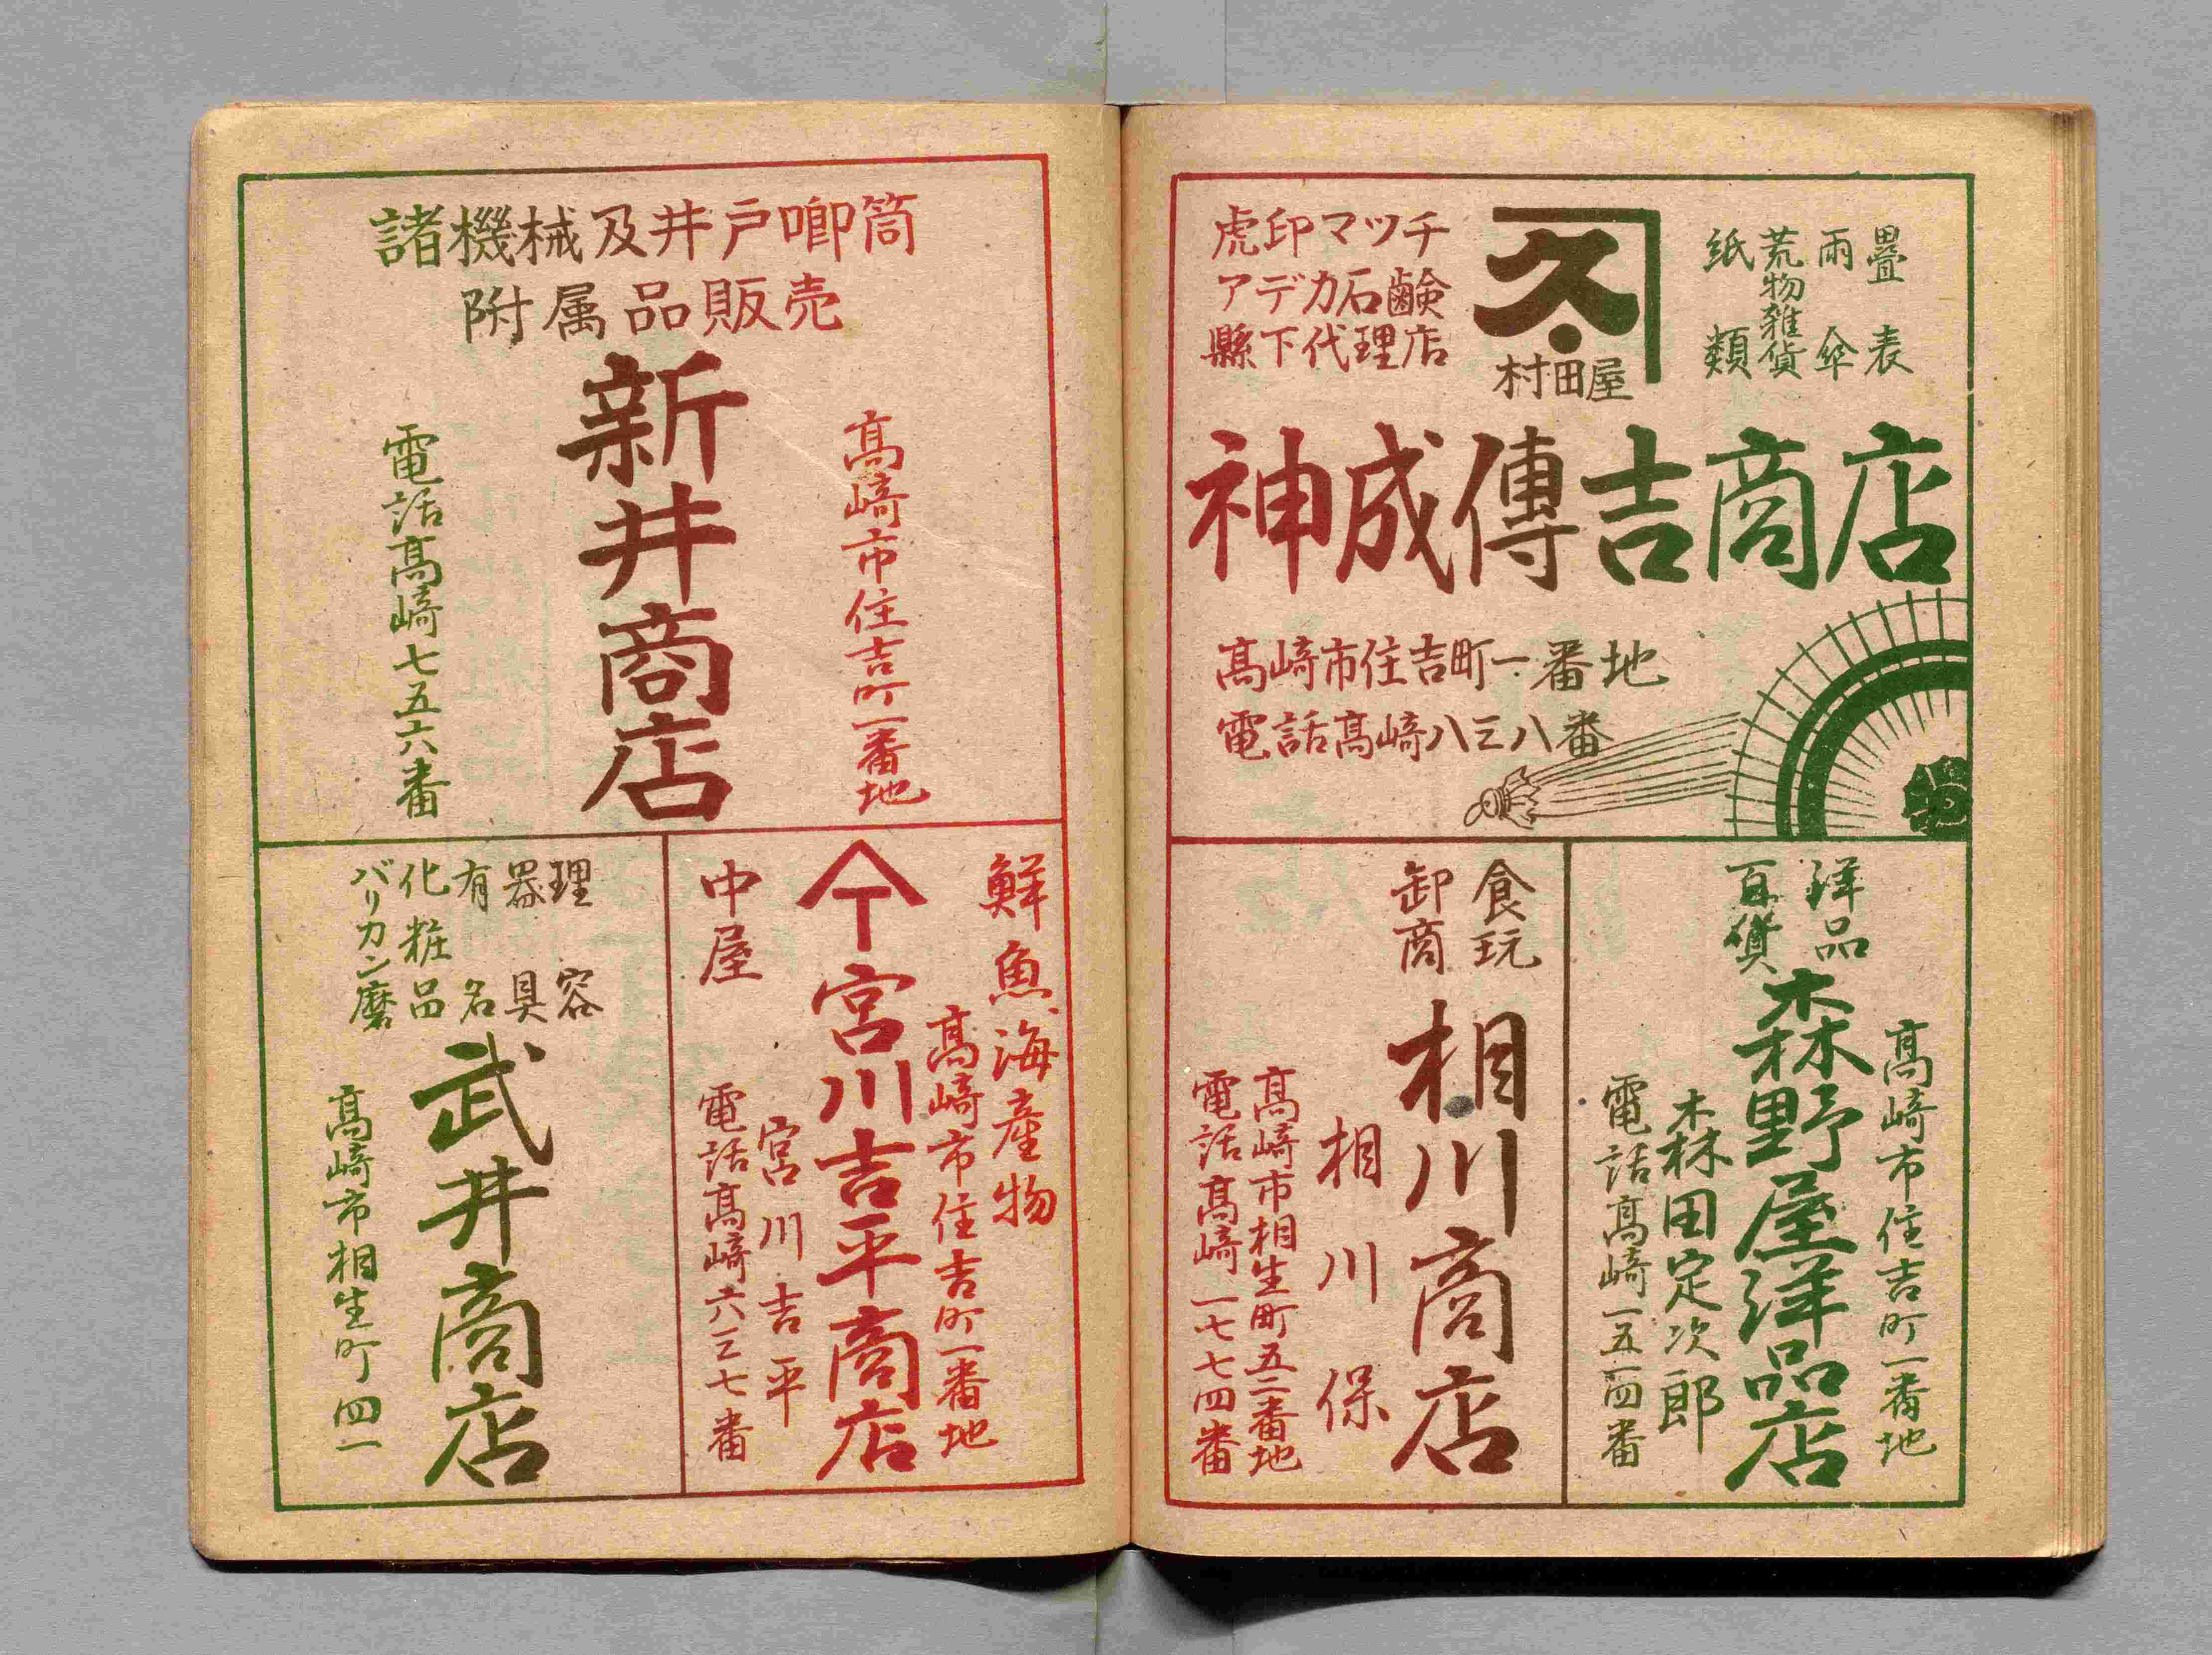 畳表
雨傘
荒物雑貨
紙類
久
村田屋
虎印マッチ
アデカ石鹸
縣下代理店
神成傳吉商店
髙崎市住吉町一番地
電話髙崎八三八番
洋品
百貨
髙崎市住吉町一番地
森野屋洋品店
森田定次郎
電話髙崎一五一四番
食玩
卸商
相川商店
相川保
髙崎市相生町五二番地
電話髙崎一七七四番
諸機械及井戸喞筒
附属品販売
髙崎市住吉町一番地
新井商店
電話髙崎七五六番
鮮魚海産物
髙崎市住吉町一番地
宮川吉平商店
中屋
宮川吉平
電話髙崎六三七番
理容
器具
有名
化粧品
バリカン磨
武井商店
髙崎市相生町四一